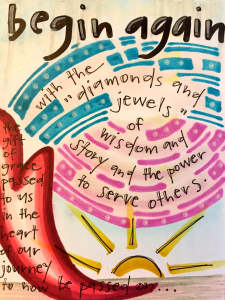 begin again
with the
"diamonds and
jewels"
of
wisdom and
story and the power
to serve others.
the
gift
of
grace
passed
to us
in the
heart
of our
journey
to now be passed on...